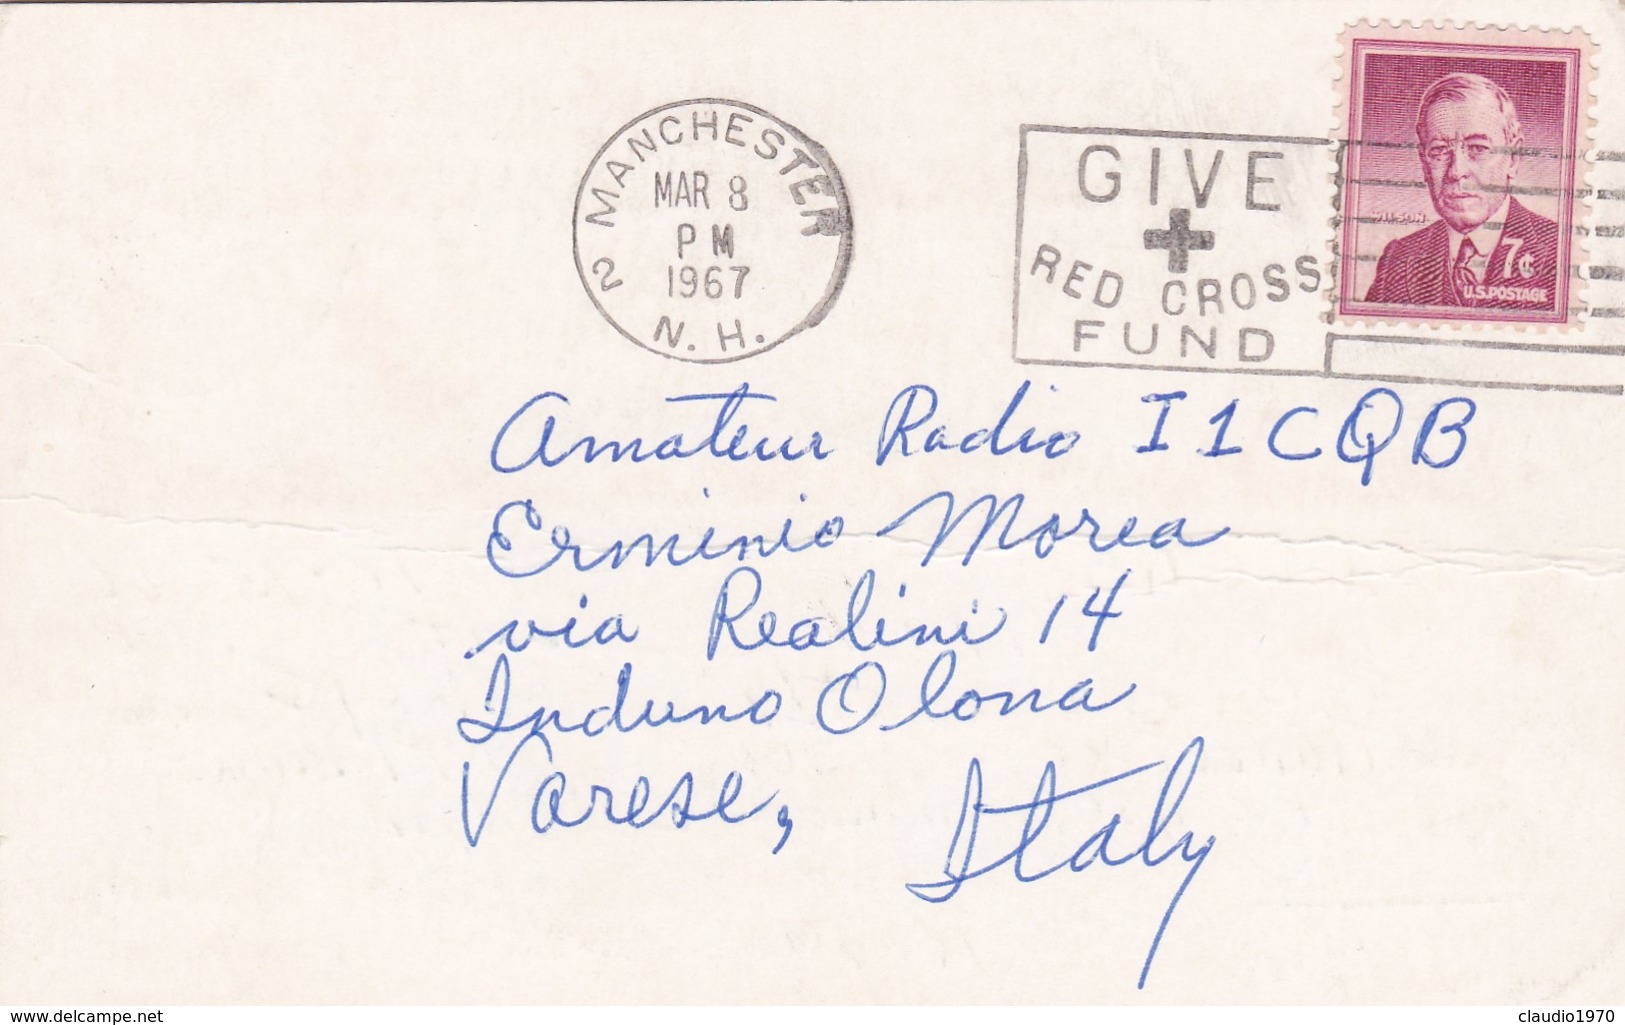 2 MANCHESTER N. H.
MAR 8
PM
1967
GIVE
RED CROSS
FUND
WILSON
7¢
U.S. POSTAGE
Amateur Radio I1CQB
Erminio Morea
via Realini 14
Induno Olona
Varese, Italy
www.delcampe.net
claudio1970